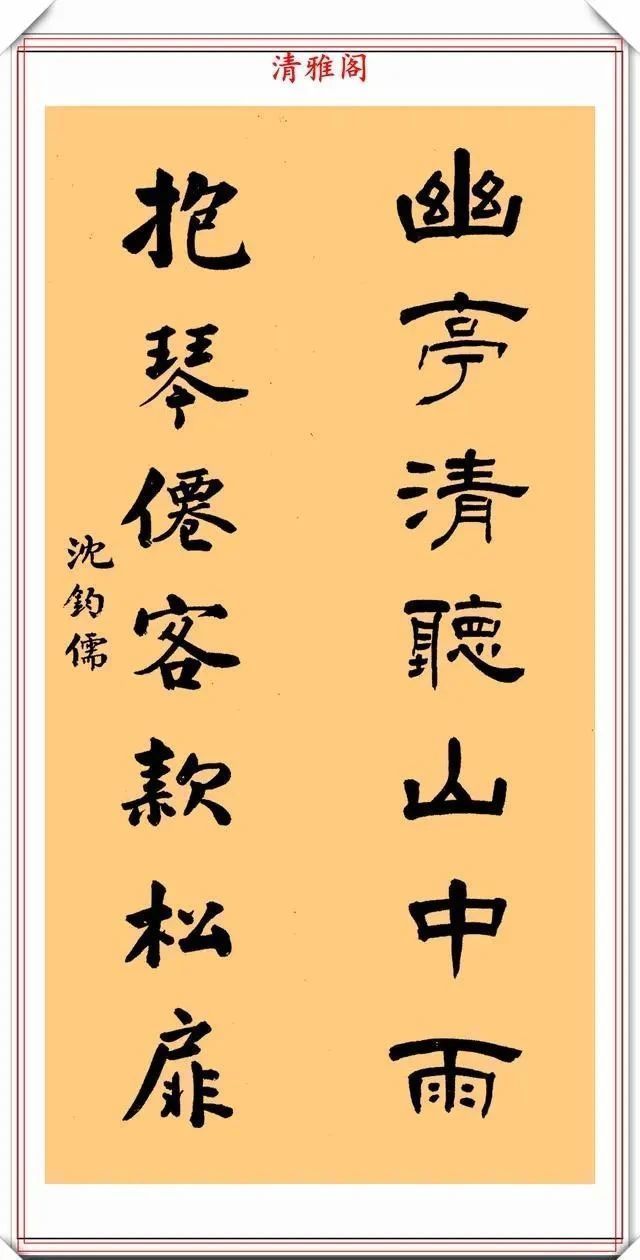 清雅阁
幽亭清聽山中雨
抱琴僊客款松扉
沈鈞儒